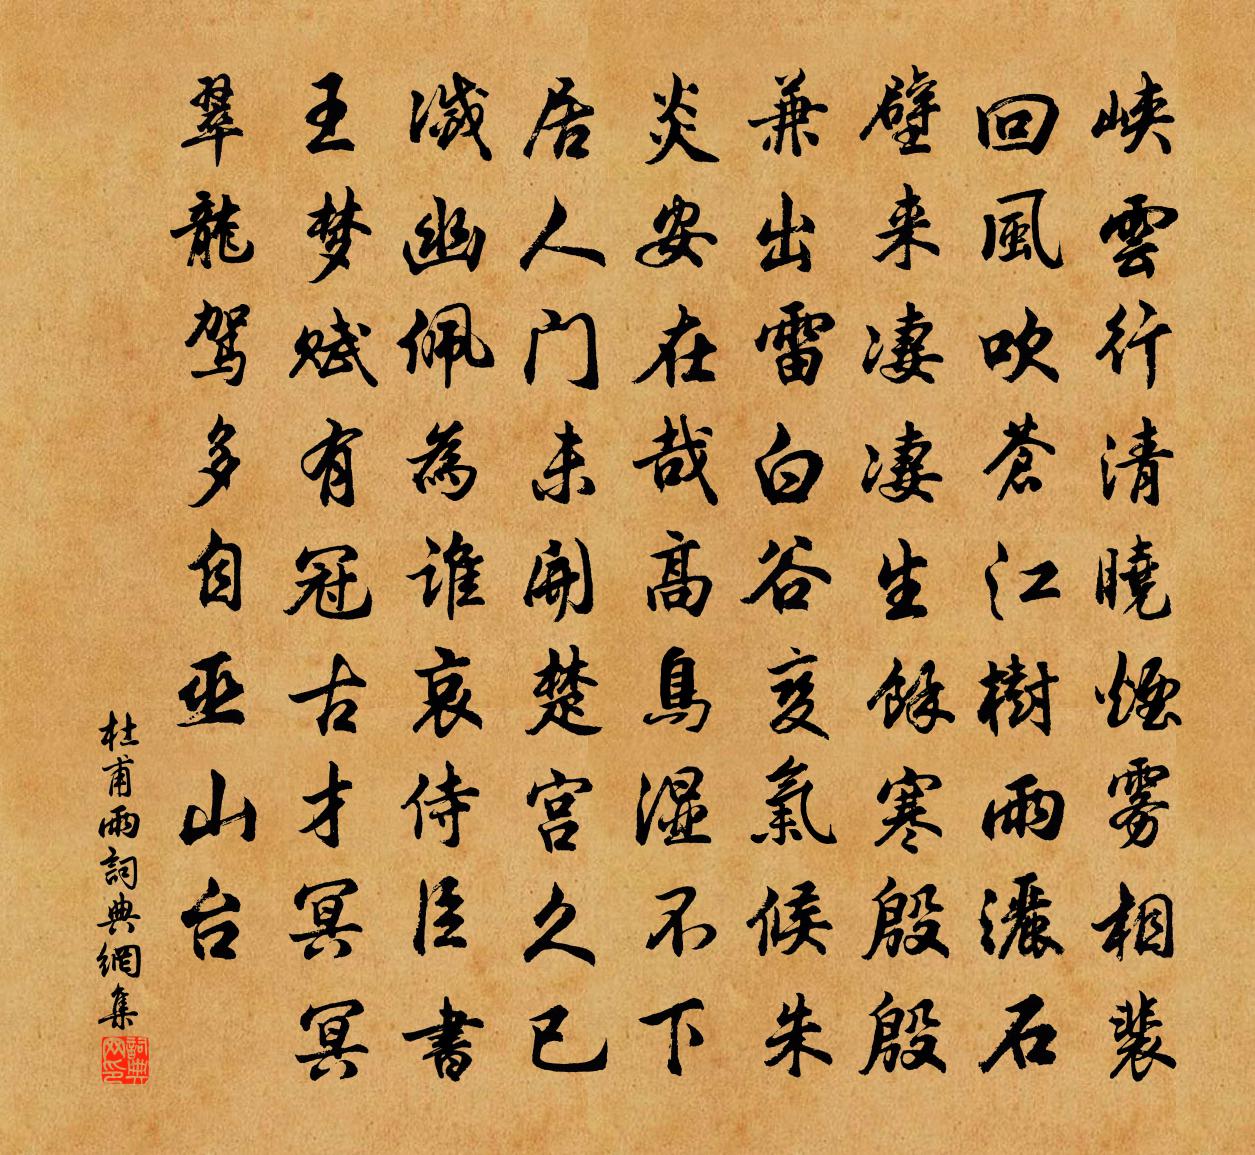 峡雲行清曉煙雾相裴
回風吹蒼江樹雨灑石
壁来凄凄生餘寒殷殷
兼出雷白谷变氣候朱
炎安在哉高鳥湿不下
居人门未開楚宫久已
滅幽佩為誰哀侍臣書
王梦赋有冠古才冥冥
翠龍驾多自巫山台
杜甫雨詞典網集
詞典网印